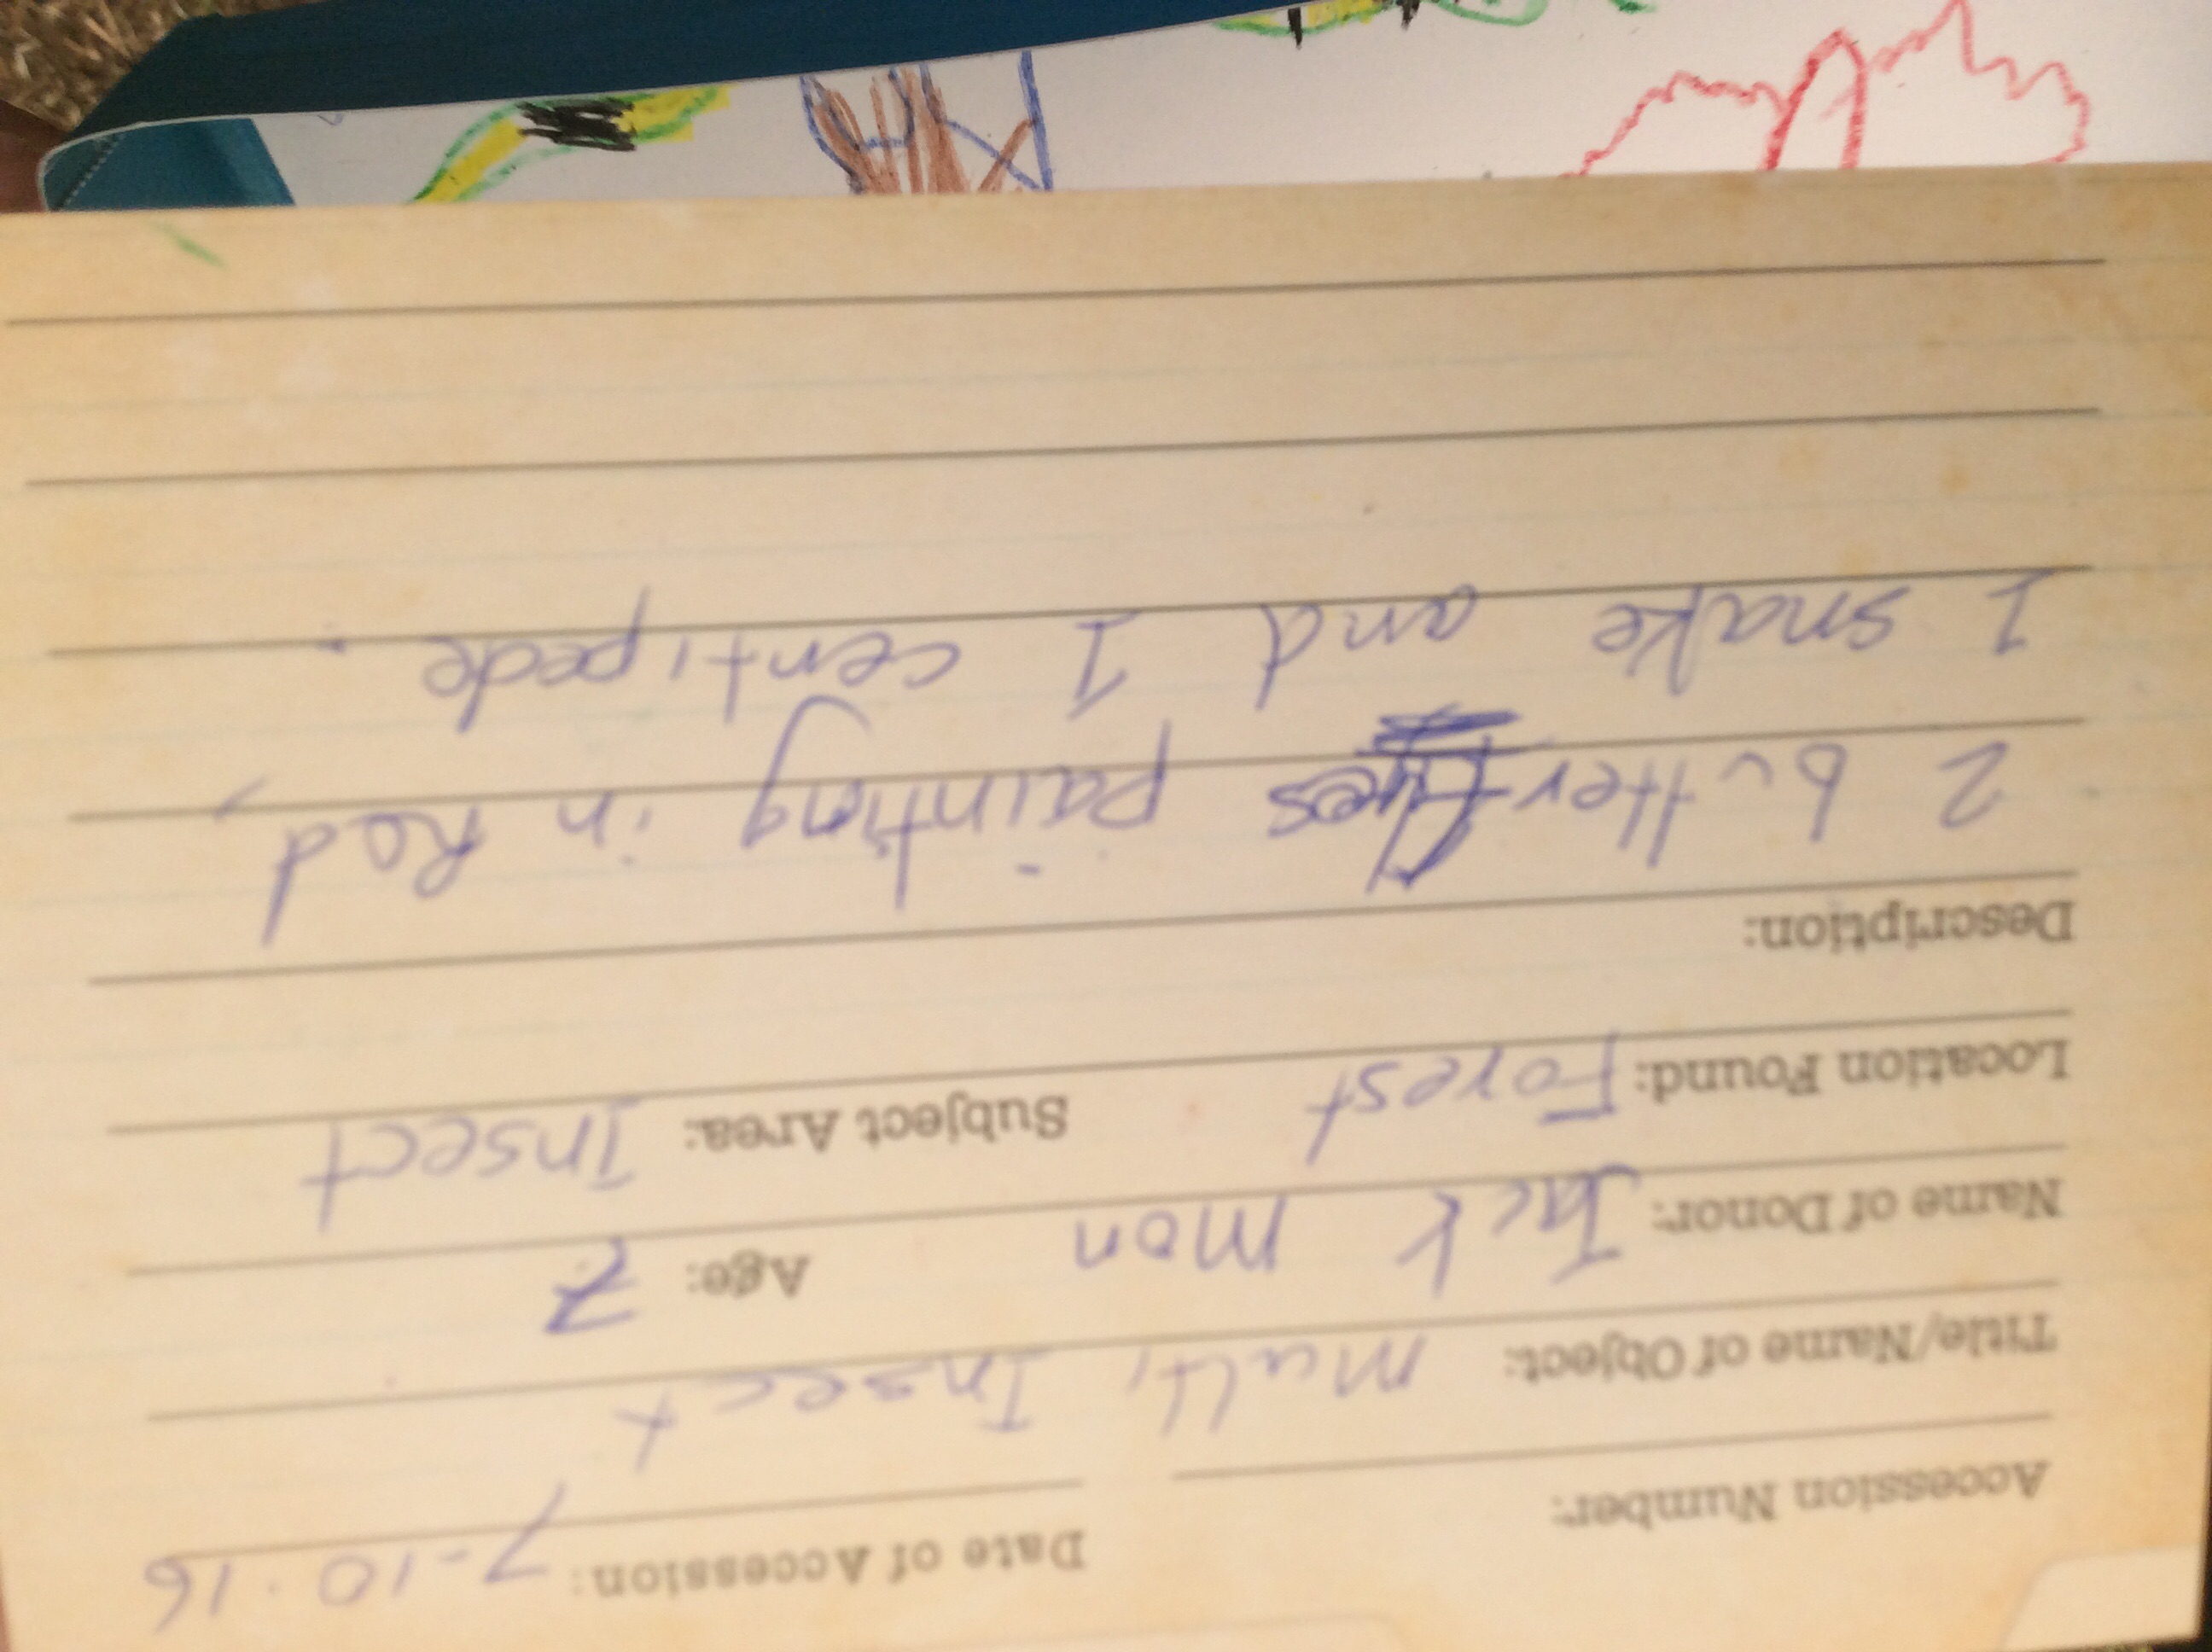 Accession Number:
Date of Accession: 7-10.16
Title/Name of Object: Multi Insect
Name of Donor: Jack Mon Age: 7
Location Found: Forest Subject Area: Insect
Description:
2 butterflyes painting in Red,
1 snake and 1 centipede.